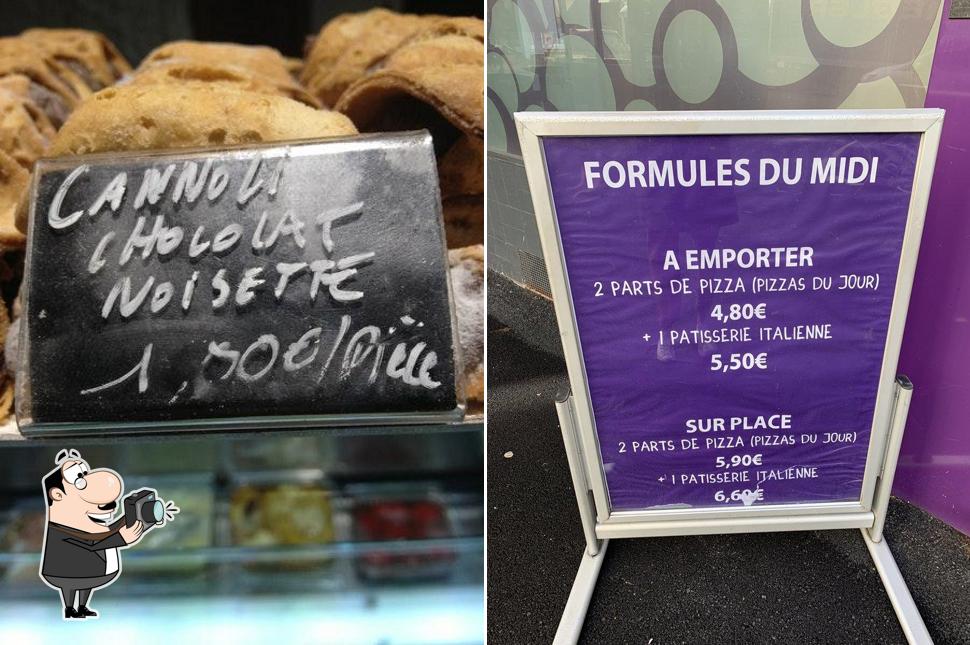 CANNOLI
CHOCOLAT
NOISETTE
1,80€/Pièce
FORMULES DU MIDI
A EMPORTER
2 PARTS DE PIZZA (PIZZAS DU JOUR)
4,80€
+ 1 PATISSERIE ITALIENNE
5,50€
SUR PLACE
2 PARTS DE PIZZA (PIZZAS DU JOUR)
5,90€
+ 1 PATISSERIE ITALIENNE
6,60€